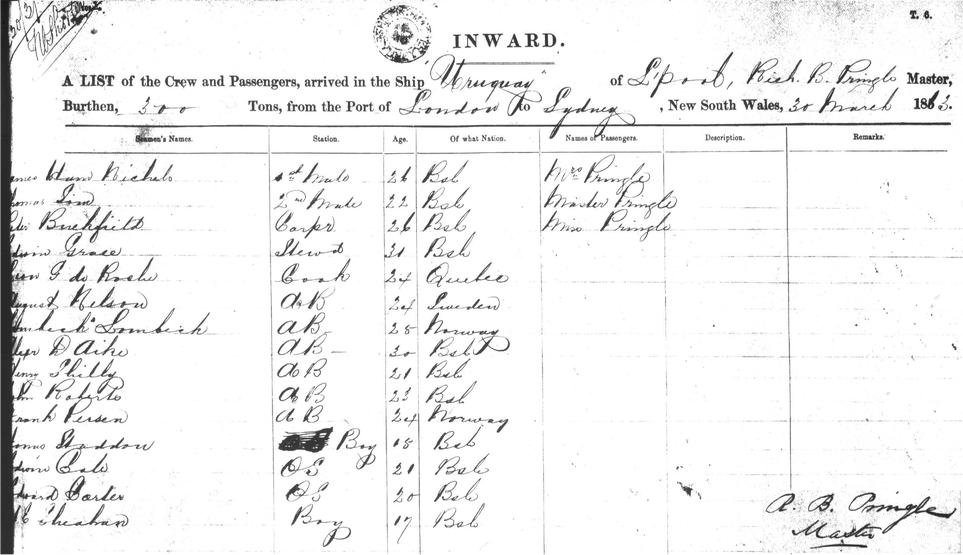 T. 6.
INWARD.
A LIST of the Crew and Passengers, arrived in the Ship "Uruguay" of L'pool, Rich. B. Pringle Master,
Burthen, 300 Tons, from the Port of London to Sydney, New South Wales, 30 March 1883.
Seamen's Names. Station. Age. Of what Nation. Names of Passengers. Description. Remarks.
Nichols 1st Mate 26 Bsh Mrs Pringle
2nd Mate 22 Bsh Master Pringle
Carpr 26 Bsh Miss Pringle
Grase Stewd 31 Bsh
G de Roshe Cook 24 Quebec
August Nelson AB 24 Sweden
Lombick AB 28 Norway
D Aike AB — 30 Bsh
AB 21 Bsh
Roberts AB 23 Bsh
Frank Persen AB 24 Norway
Haddow Boy 18 Bsh
Cale OS 21 Bsh
Edward Carter OS 20 Bsh
Sheahan Boy 17 Bsh
R. B. Pringle
Master